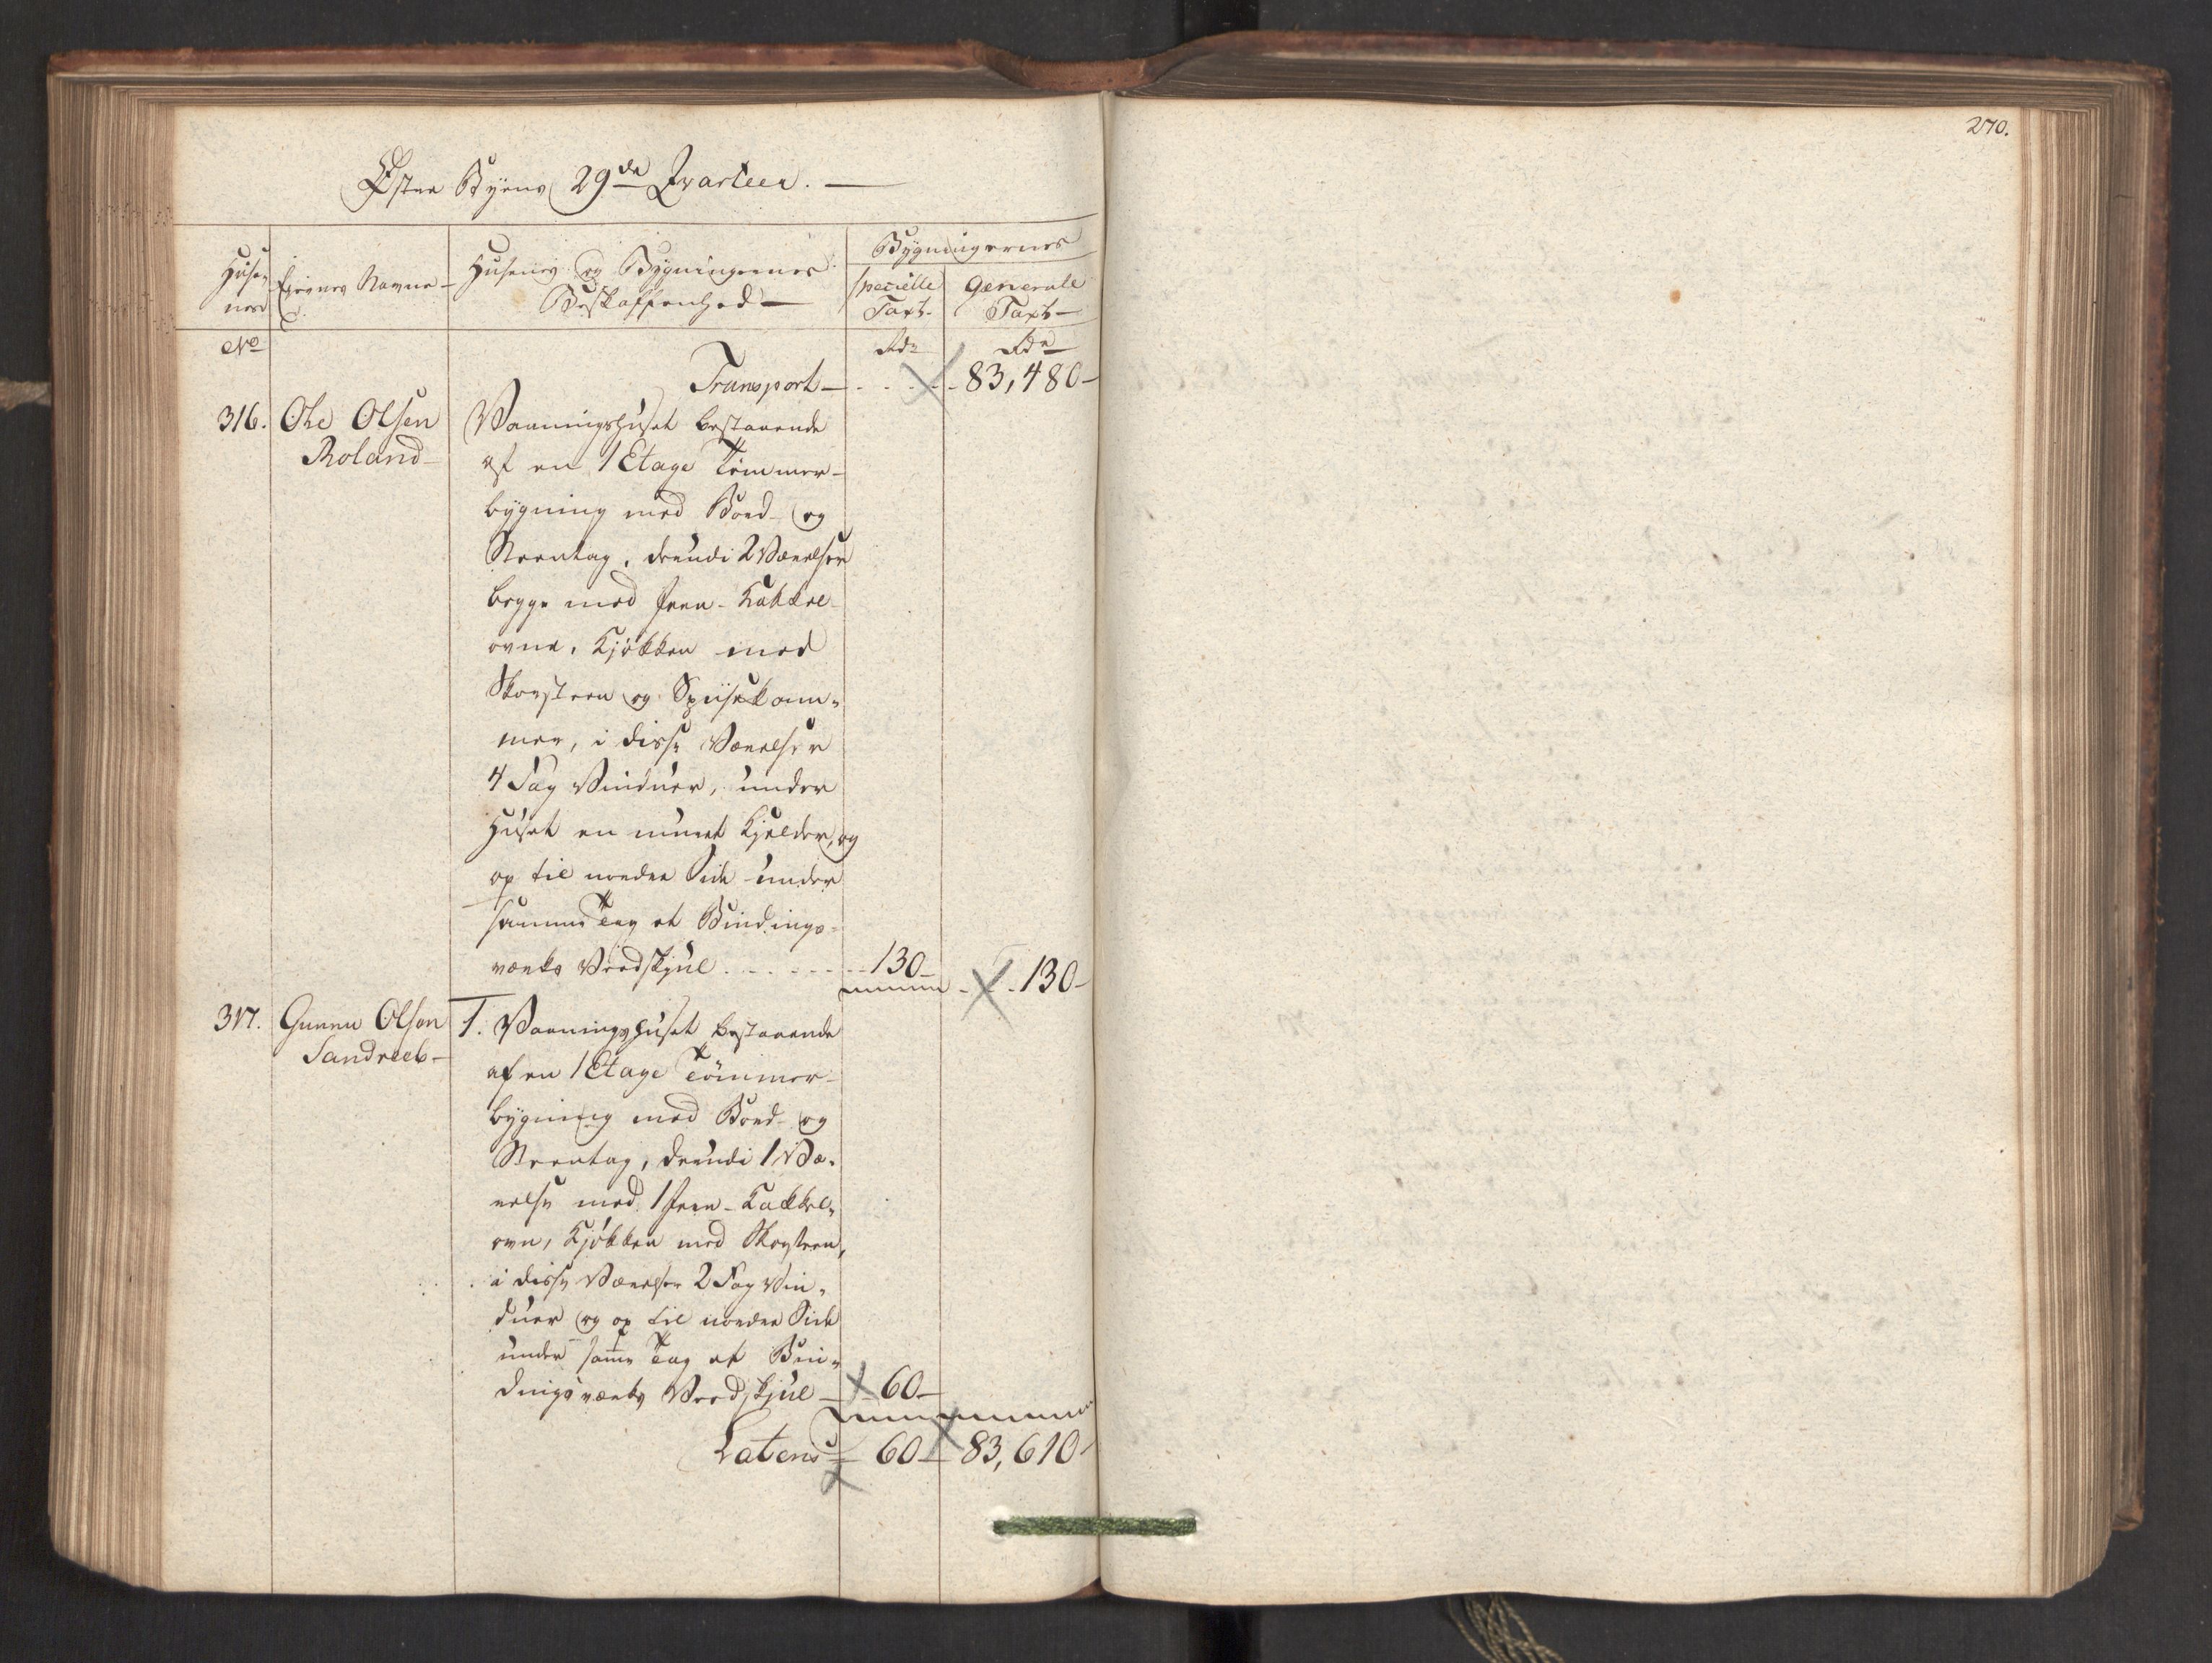 270.
Østre Byens 29de Qvarteer.
Husenes
No
Eiernes Navne
Husenes og Bygningernes
Beskaffenhed
Bygningernes
specielle
Taxt
Generale
Taxt
Rdr
Rdr
Transport 83,480
316. Ole Olsen
Roland
Vaaningshuset bestaaende
af en 1 Etage Tømmer-
bygning med Bord- og
Steentag, deri 2 Værelser
begge med Jern-Kakkel-
ovne, Kjøkken med
Skorsteen og Spiisekam-
mer, i disse Værelser
4 Fag Vinduer, under
Huset en muret Kjelder, og
op til nordre Side under
samme Tag et Bindings-
værks Vedskjul 130 130
317. Gunnu Olsen
Sandreeb
1. Vaaningshuset bestaaende
af en 1 Etage Tømmer-
bygning med Bord- og
Steentag, derudi 1 Væ-
relse med 1 Jern-Kakkel-
ovn, Kjøkken med Skorsteen,
i disse Værelser 2 Fag Vin-
duer og op til nordre Side
under same Tag et Bin-
dingsværks Vedskjul 60
Latens 60 83,610